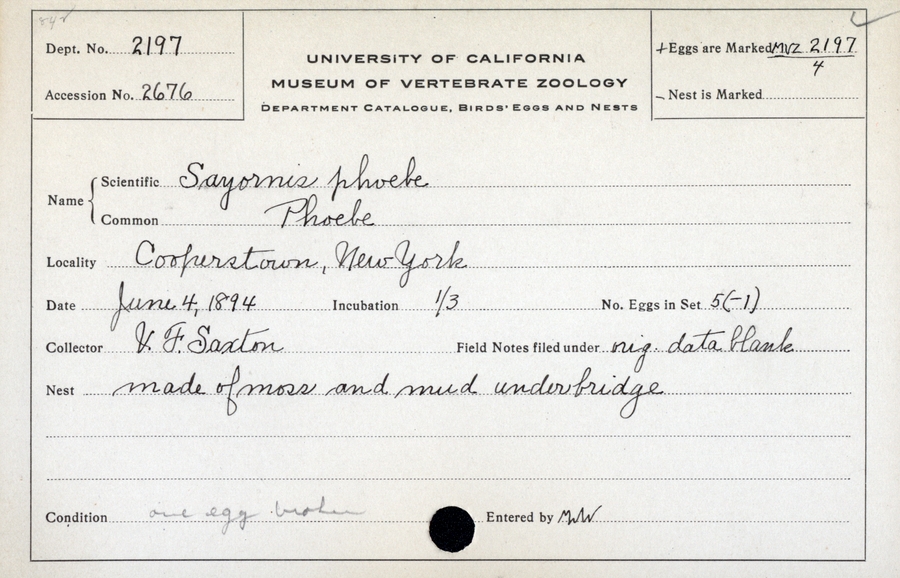 Dept. No. 2197
Accession No. 2676
UNIVERSITY OF CALIFORNIA
MUSEUM OF VERTEBRATE ZOOLOGY
DEPARTMENT CATALOGUE, BIRDS' EGGS AND NESTS
+ Eggs are Marked MVZ 2197
4
- Nest is Marked
Name
Scientific Sayornis phoebe
Common Phoebe
Locality Cooperstown, New York
Date June 4, 1894 Incubation 1/3 No. Eggs in Set 5(-1)
Collector V. F. Saxton Field Notes filed under orig. data blank
Nest made of moss and mud under bridge
Condition one egg broken Entered by